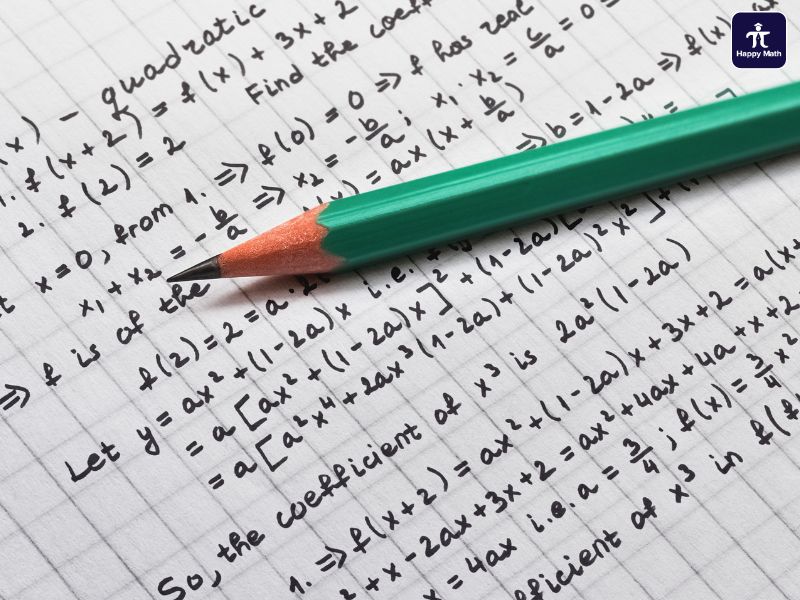 (x) - quadratic
1. f(x+2) = f(x) + 3x + 2
2. f(2) = 2
Find the coeff
x = 0, from 1. => f(0) = 0 => f has real
x₁ + x₂ = -b/a => x₂ = -b/a ; x₁ · x₂ = c/a = 0 =
=> f is of the (x) = ax(x + b/a)
=> b = 1-2a => f(x)
f(2) = 2 = a ·
Let y = ax² + (1-2a)x i.e.
= a[ax² + (1-2a)x]² + (1-2a)[
= a[a²x⁴ + 2ax³(1-2a) + (1-2a)²x²] +
So, the coefficient of x³ is 2a²(1-2a)
1. => f(x+2) = ax² + (1-2a)x + 3x + 2 = a(x+
² + x - 2ax + 3x + 2 = ax² + 4ax + 4a + x + 2
x = 4ax i.e. a = 3/4 ; f(x) = 3/4 x²
efficient of x³ in f(f
π
Happy Math